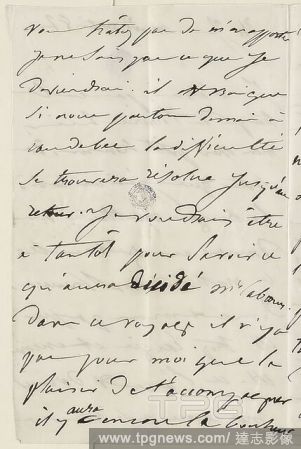 vous hâtez pas de m'en apporter
je ne sais pas ce que je
deviendrai. il
si nous partons demain à
la difficulté
se trouvera résolue jusqu'au
retour. Je voudrais être
à tantôt pour savoir ce
qu'aura décidé
Dans ce voyage il n'y a
que pour moi que le
plaisir de t'accompagner
il y aura encore le bonheur
TPG
www.tpgnews.com / 達志影像